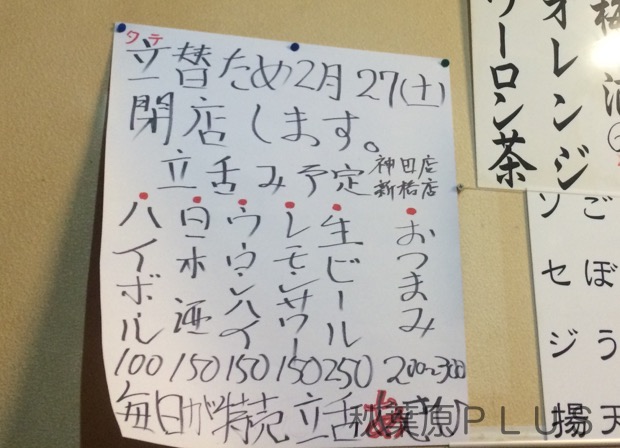 タテ
立替ため2月27(土)
閉店します。
立呑み予定 神田店
新橋店
・ハイボール 100
・日本酒 150
・ウーロンハイ 150
・レモンサワー 150
・生ビール 250
・おつまみ 200〜300
毎日が特売 立呑
秋葉原PLUS
ウーロン茶
オレンジ
梅酒
ごぼう天
ソーセージ揚